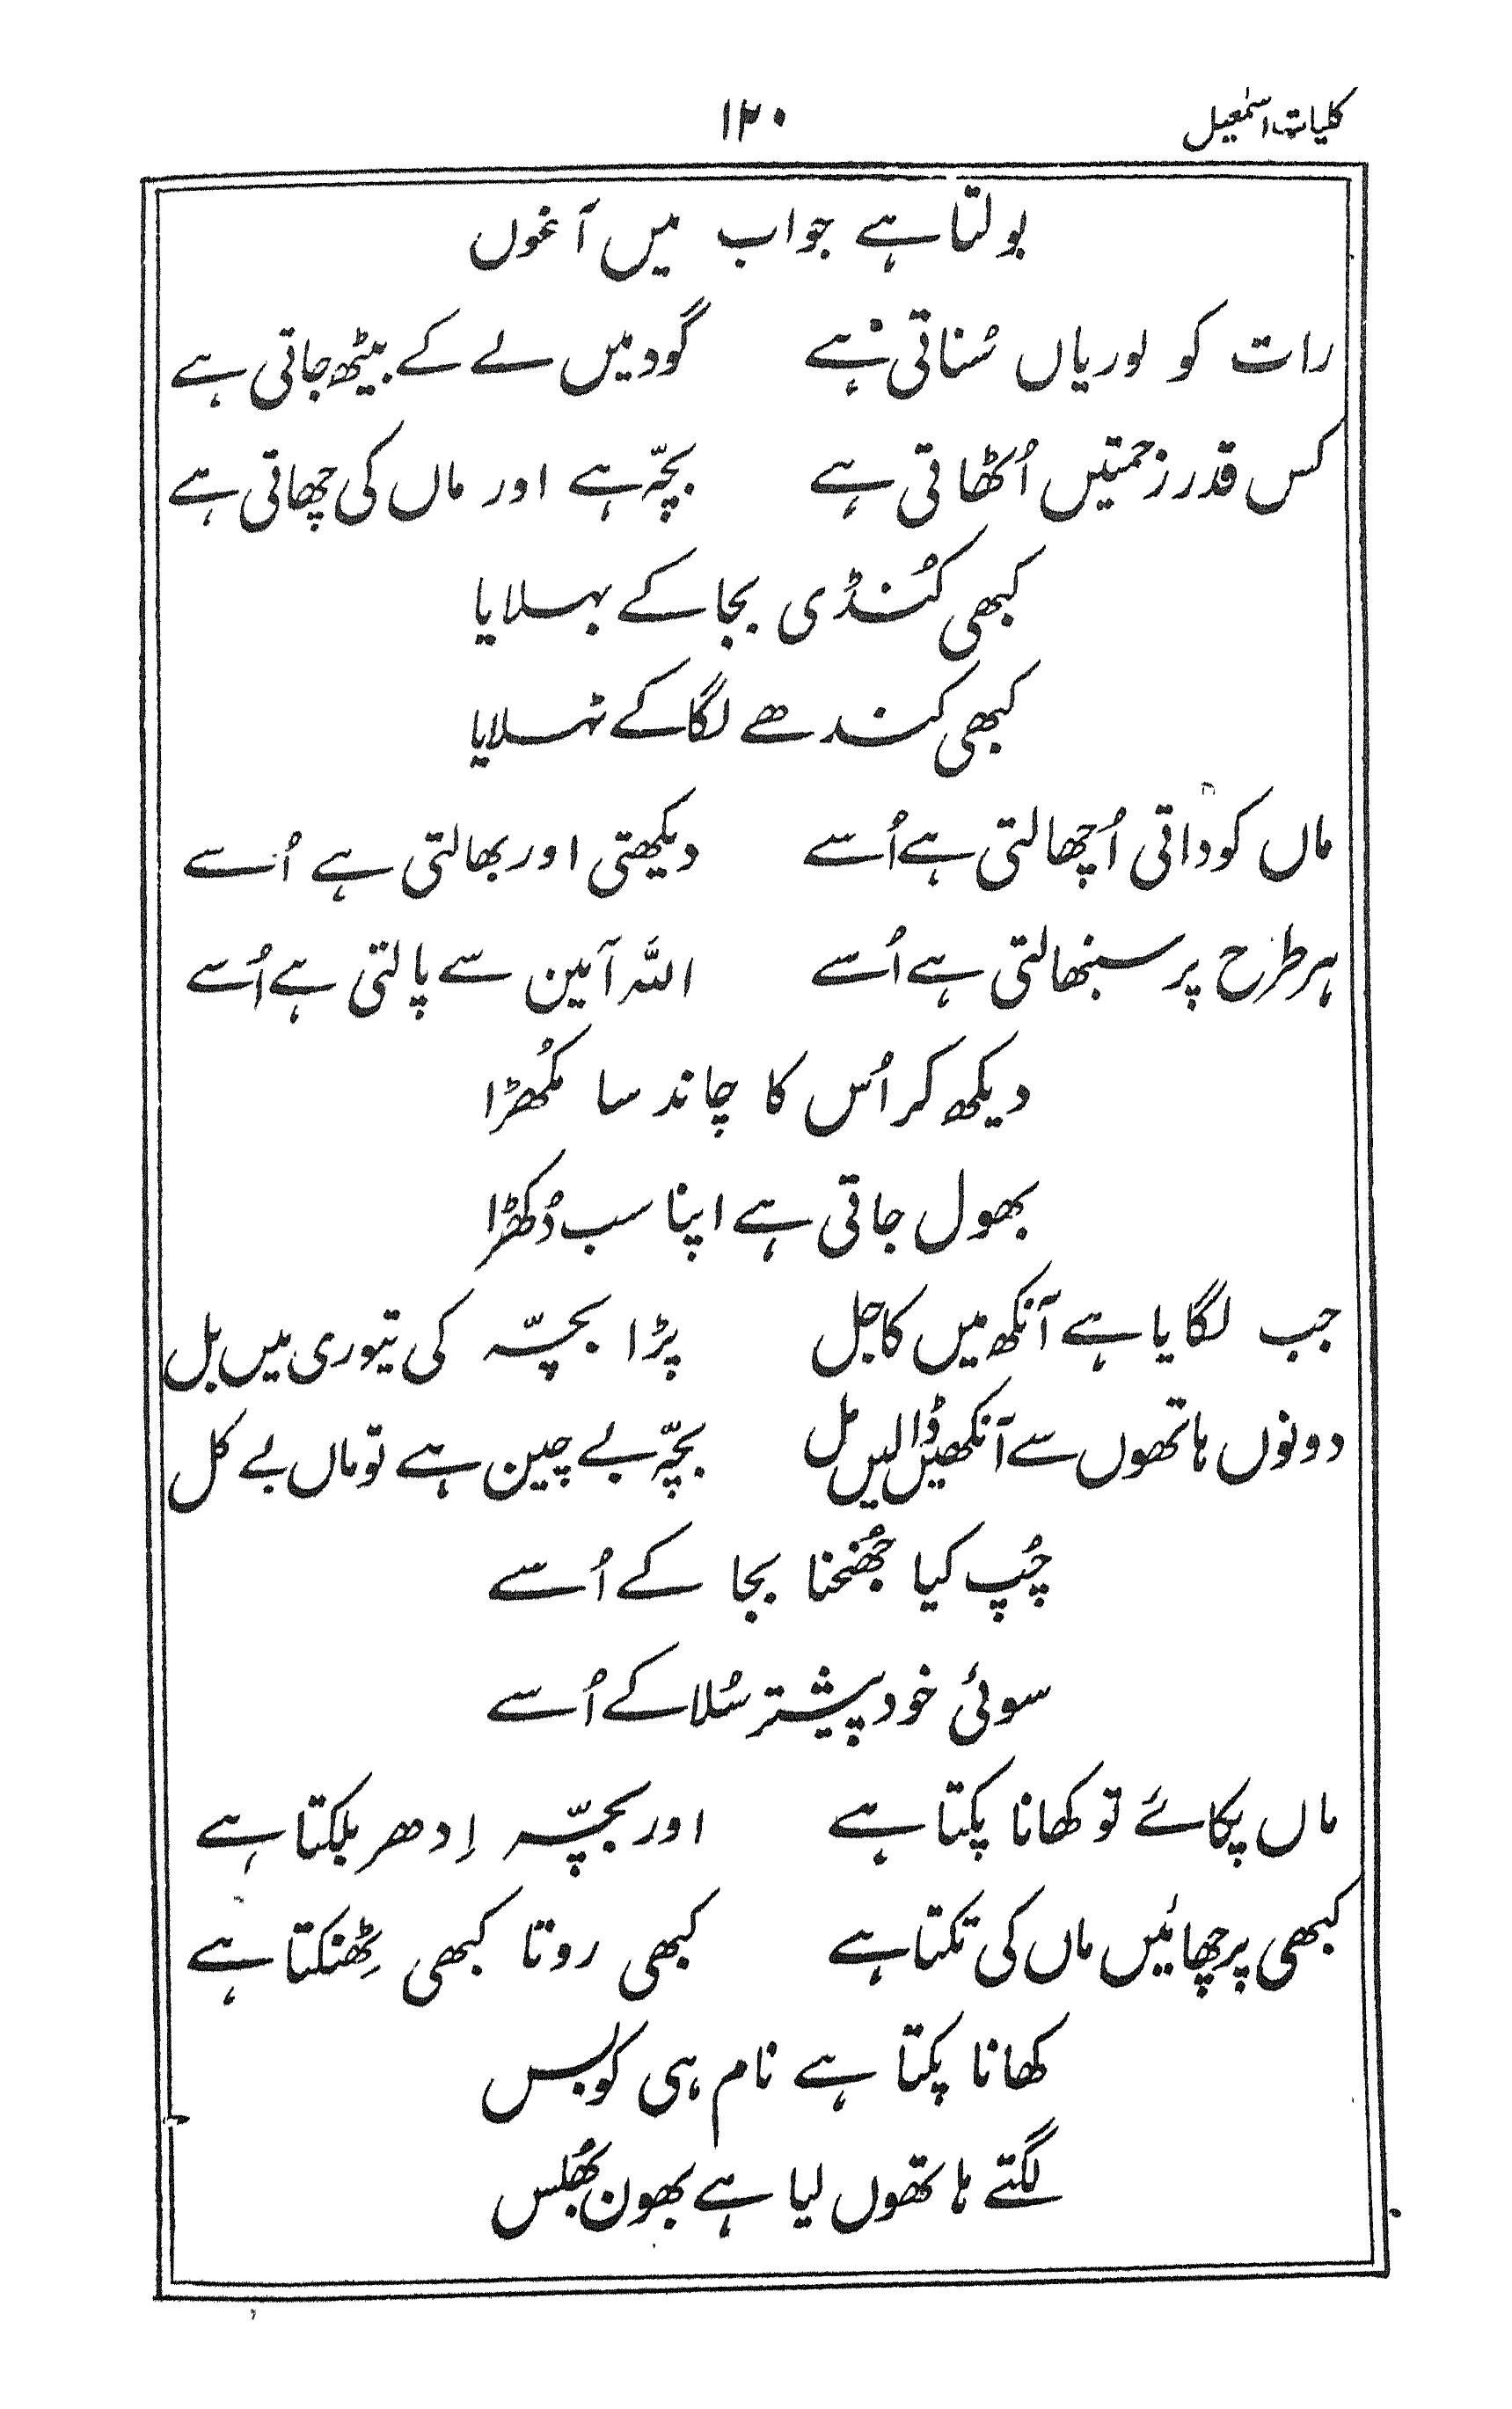 کلیات اسمٰعیل ۱۲۰
بولتا ہے جواب میں آغوں
رات کو لوریاں سُناتی ہے گود میں لے کے بیٹھ جاتی ہے
کس قدر زحمتیں اُٹھاتی ہے بچّہ ہے اور ماں کی چھاتی ہے
کبھی کُنڈی بجا کے بہلایا
کبھی کندھے لگا کے ٹہلایا
ماں کوداتی اُچھالتی ہے اُسے دیکھتی اور بھالتی ہے اُسے
ہر طرح پر سنبھالتی ہے اُسے اللہ آمین سے پالتی ہے اُسے
دیکھ کر اُس کا چاند سا مُکھڑا
بھول جاتی ہے اپنا سب دُکھڑا
جب لگایا ہے آنکھ میں کاجل پڑا بچّہ کی تیوری میں بل
دونوں ہاتھوں سے آنکھیں ڈالیں مل بچّہ بے چین ہے تو ماں بے کل
چُپ کیا جُھنجنا بجا کے اُسے
سوئی خود پیشتر سُلا کے اُسے
ماں پکائے تو کھانا پکتا ہے اور بچّہ اِدھر بلکتا ہے
کبھی پرچھائیں ماں کی تکتا ہے کبھی روتا کبھی ٹِھنکتا ہے
کھانا پکتا ہے نام ہی کو بس
لگتے ہاتھوں لیا ہے بھون بُھلس